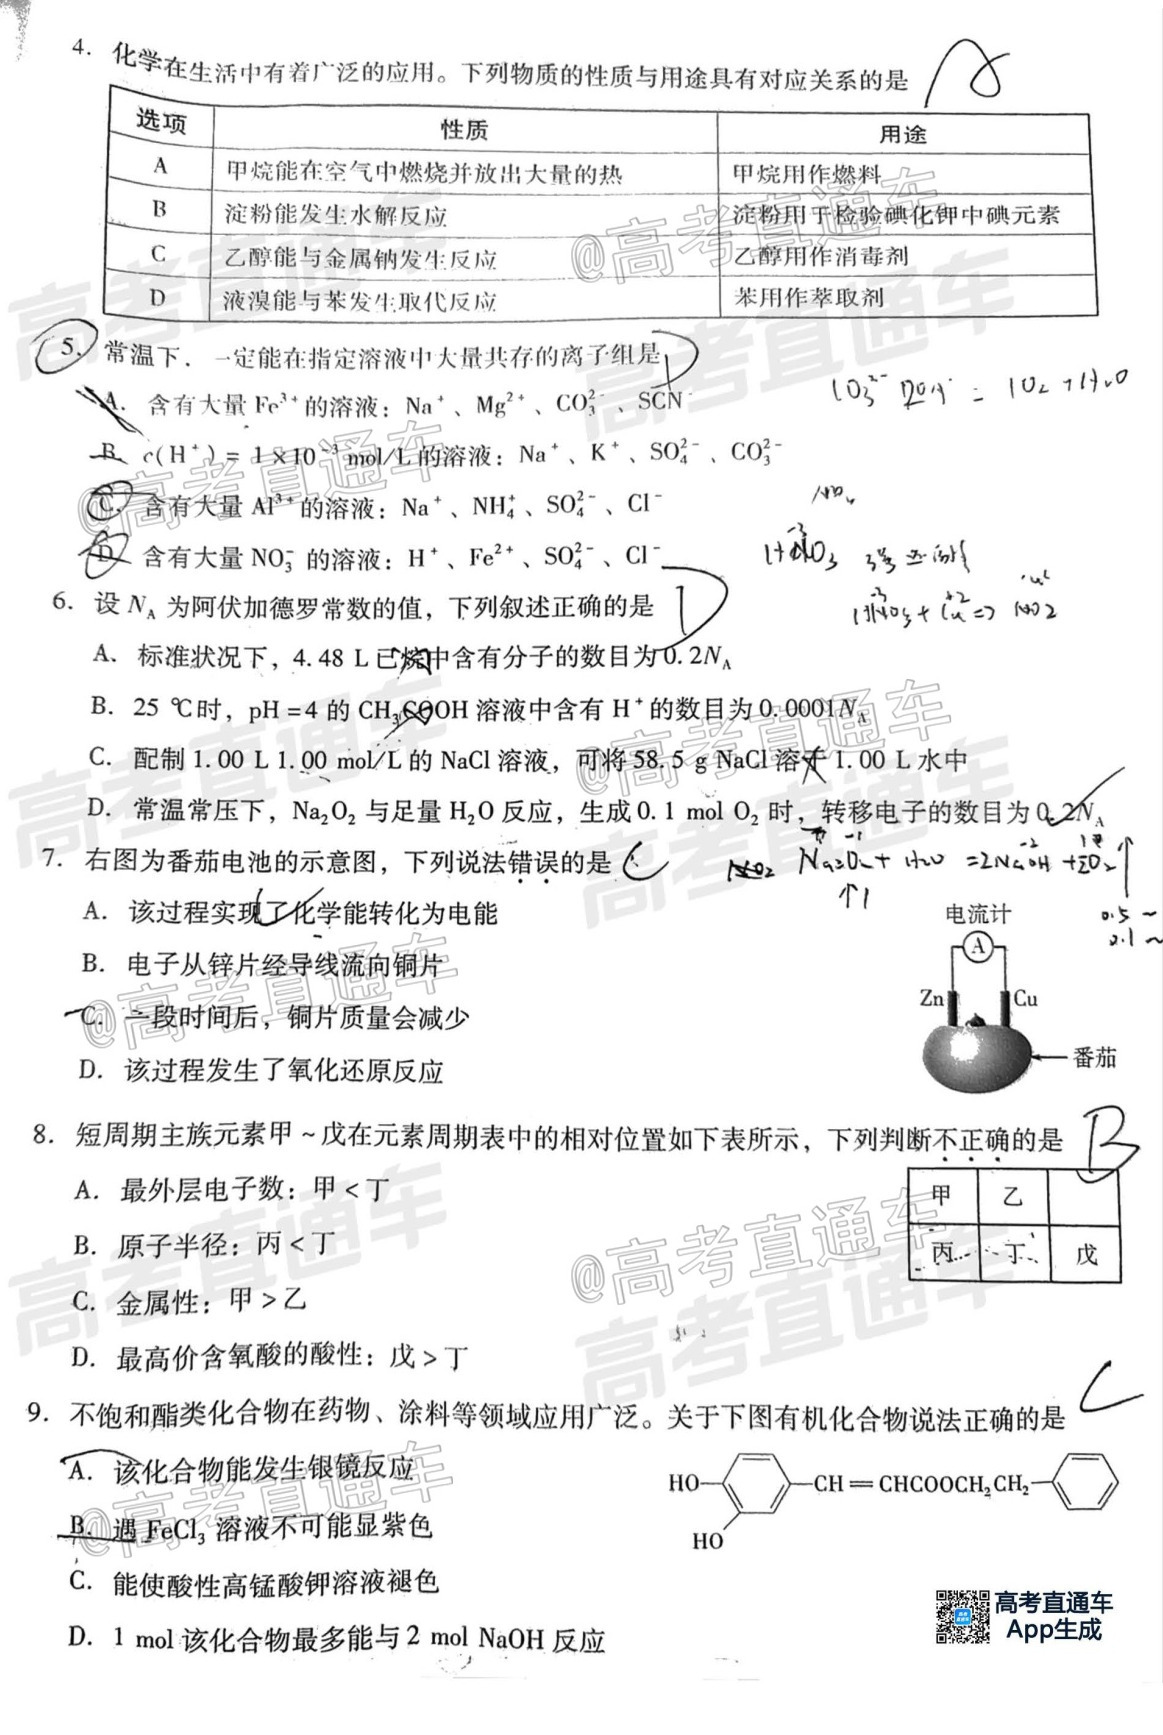 4. 化学在生活中有着广泛的应用。下列物质的性质与用途具有对应关系的是 A
选项 性质 用途
A 甲烷能在空气中燃烧并放出大量的热 甲烷用作燃料
B 淀粉能发生水解反应 淀粉用于检验碘化钾中碘元素
C 乙醇能与金属钠发生反应 乙醇用作消毒剂
D 液溴能与苯发生取代反应 苯用作萃取剂
5. 常温下，一定能在指定溶液中大量共存的离子组是 D
A. 含有大量 Fe³⁺ 的溶液：Na⁺、Mg²⁺、CO₃²⁻、SCN⁻
B. c(H⁺) = 1×10⁻³ mol/L 的溶液：Na⁺、K⁺、SO₄²⁻、CO₃²⁻
C. 含有大量 Al³⁺ 的溶液：Na⁺、NH₄⁺、SO₄²⁻、Cl⁻
D. 含有大量 NO₃⁻ 的溶液：H⁺、Fe²⁺、SO₄²⁻、Cl⁻
6. 设 Nₐ 为阿伏加德罗常数的值，下列叙述正确的是 D
A. 标准状况下，4.48 L 已烷中含有分子的数目为 0.2Nₐ
B. 25 ℃时，pH=4 的 CH₃COOH 溶液中含有 H⁺ 的数目为 0.0001Nₐ
C. 配制 1.00 L 1.00 mol/L 的 NaCl 溶液，可将 58.5 g NaCl 溶于 1.00 L 水中
D. 常温常压下，Na₂O₂ 与足量 H₂O 反应，生成 0.1 mol O₂ 时，转移电子的数目为 0.2Nₐ
7. 右图为番茄电池的示意图，下列说法错误的是 C
A. 该过程实现了化学能转化为电能
B. 电子从锌片经导线流向铜片
C. 一段时间后，铜片质量会减少
D. 该过程发生了氧化还原反应
电流计
A
Zn Cu
番茄
8. 短周期主族元素甲~戊在元素周期表中的相对位置如下表所示，下列判断不正确的是 B
A. 最外层电子数：甲<丁
B. 原子半径：丙<丁
C. 金属性：甲>乙
D. 最高价含氧酸的酸性：戊>丁
甲 乙
丙 丁 戊
9. 不饱和酯类化合物在药物、涂料等领域应用广泛。关于下图有机化合物说法正确的是 C
A. 该化合物能发生银镜反应
B. 遇 FeCl₃ 溶液不可能显紫色
C. 能使酸性高锰酸钾溶液褪色
D. 1 mol 该化合物最多能与 2 mol NaOH 反应
HO CH=CHCOOCH₂CH₂
HO
高考直通车
App生成
@高考直通车
高考直通车